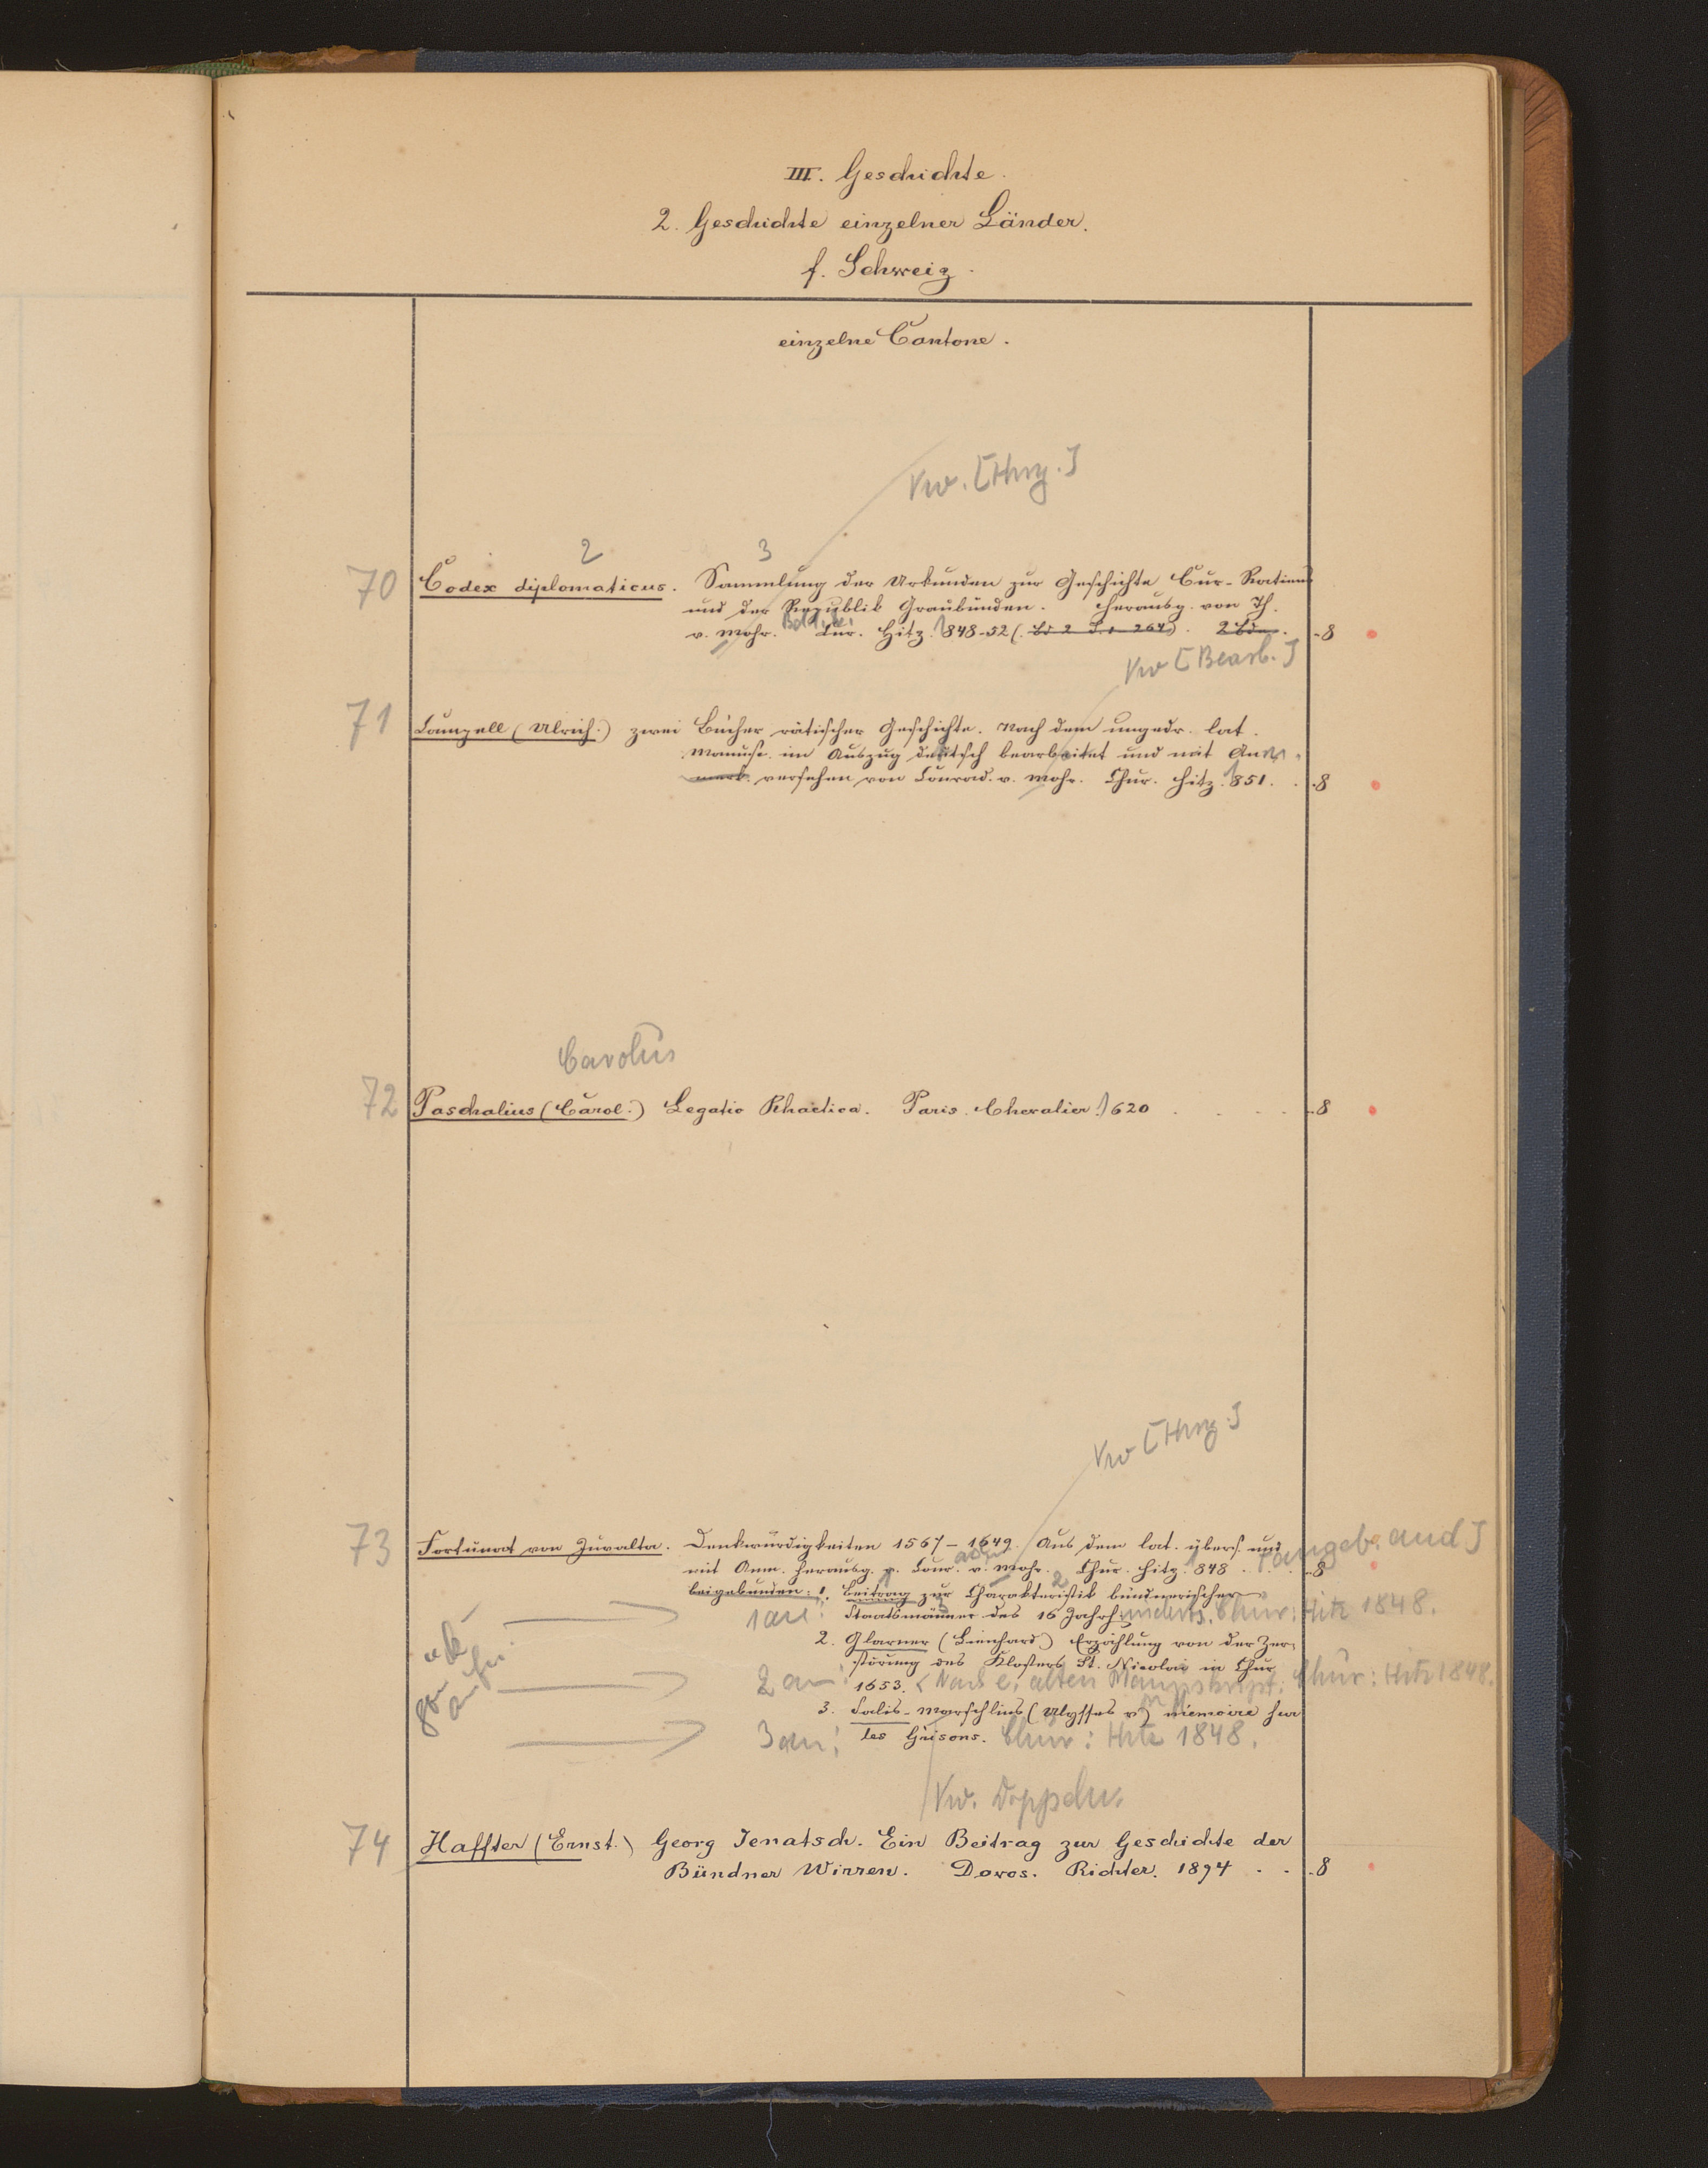 III. Geschichte.
2. Geschichte einzelner Länder.
f. Schweiz.
einzelne Cantone.
Vw. [Hrsg.]
2 3
70 Codex diplomaticus. Sammlung der Urkunden zur Geschichte Cur-Rätiens
und der Republik Graubünden. Herausg. von Th.
v. Mohr. Cur. Hitz. 1848-52 (Bd 2 S. 1-264). 2 Bde. -8
Vw [Bearb.]
71 Campell (Ulrich.) zwei Bücher rätischer Geschichte. Nach dem ungedr. lat.
Manuskr. im Auszug deutsch bearbeitet und mit Anm.
merk. versehen von Conrad. v. Mohr. Chur. Hitz. 1851. . -8
Carolus
72 Paschalius (Carol.) Legatio Rhaetica. Paris. Chevalier. 1620 . . . . -8
Vw [Hrsg.]
73 Fortunat von Juvalta. Denkwürdigkeiten 1567-1649. Aus dem lat. übers. und
mit Anm. herausg. v. Conr. v. Mohr. Chur. Hitz. 1848 . . -8 [angeb. and.]
beigebunden: 1. Beitrag zur Charakteristik bündnerischer
1 an: Staatsmänner des 16 Jahrhunderts. Chur: Hitz 1848.
2. Glarner (Lienhard) Erzählung von der Zer-
störung des Klosters St. Nicolai in Chur
2 an: 1653. <Nach e. alten Manuskript. Chur: Hitz 1848.
3. Salis-Marschlins (Ulysses v.) mémoire sur
3 an: les Grisons. Chur: Hitz 1848.
Vw. Doppeln.
74 Haffter (Ernst.) Georg Jenatsch. Ein Beitrag zur Geschichte der
Bündner Wirren. Davos. Richter. 1894 . . -8